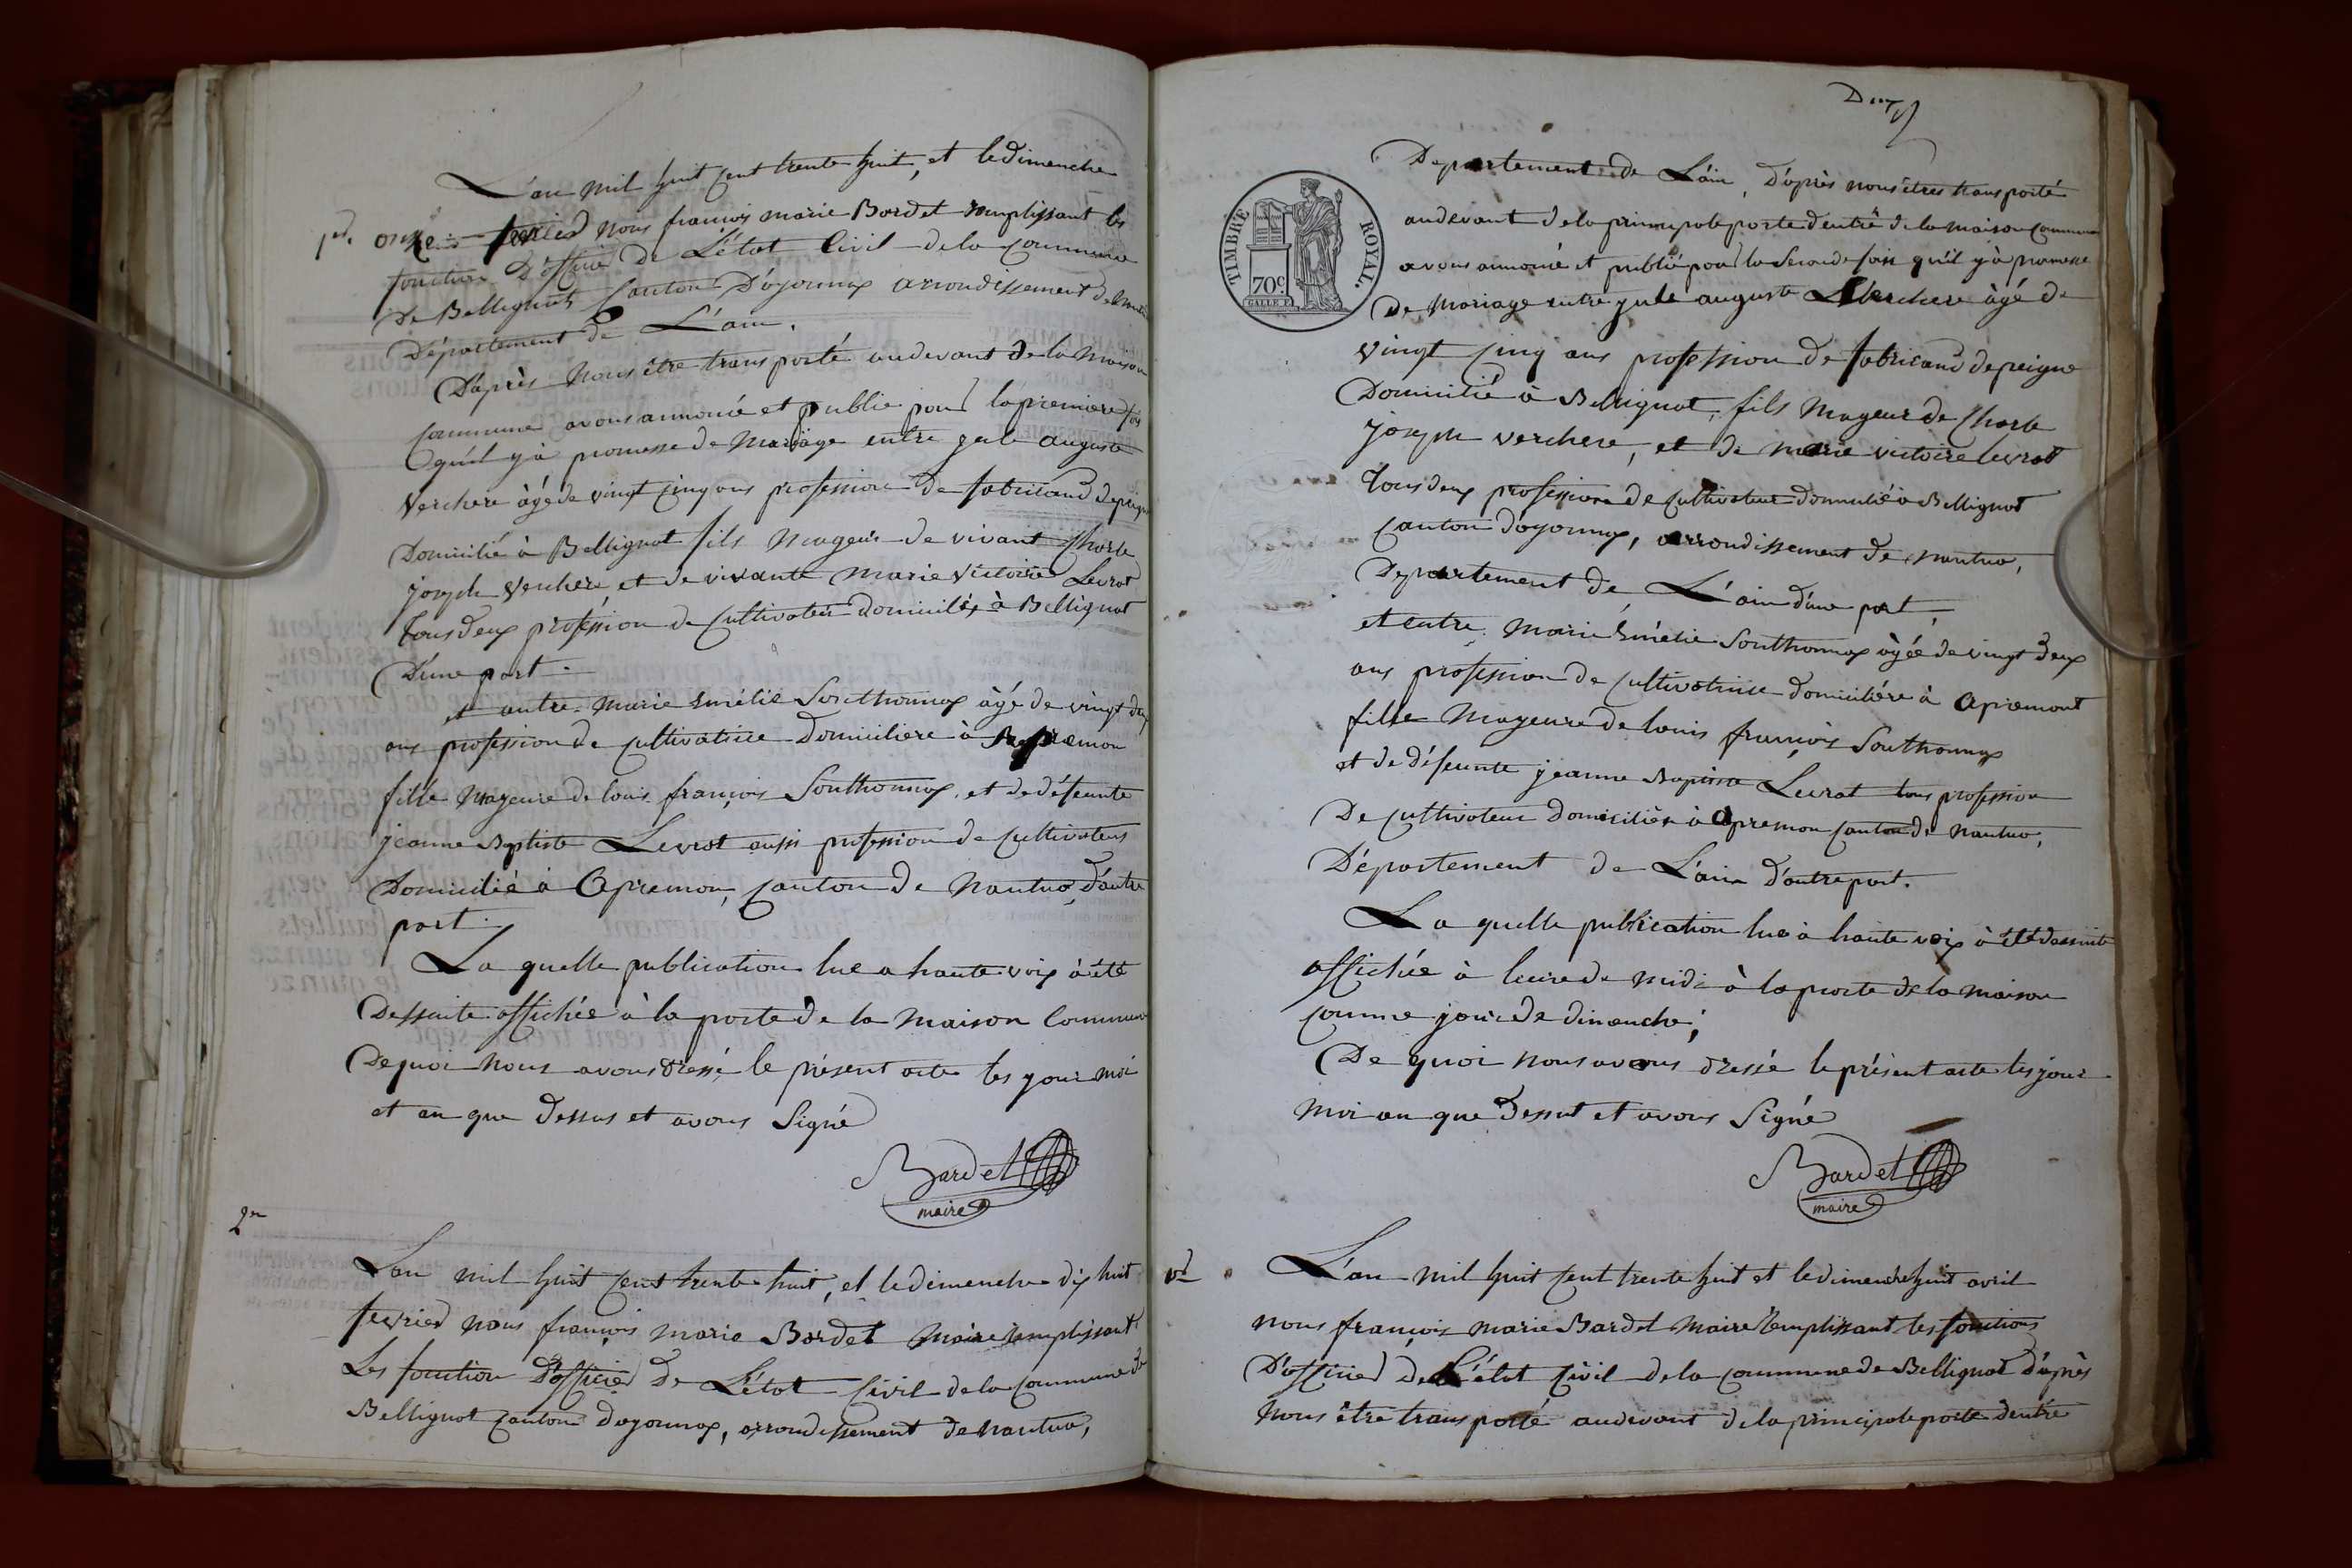 L'an mil huit cent trente huit, et le dimenche
1er. onze fevrier nous francois marie Bardet remplissant les
fonction D'officier De L'état Civil de la commune
De Bellignat Canton D'oyonnax arrondissement de Nantua
Département de L'ain.
D'après Nous être transporté au devant de la Maison
Commune avons annoncé et publié pour la premiere fois
qu'il y à promesse de Mariage entre jule auguste
Verchere àgé de vingt cinq ans profession de fabricand de peigne
Domicilié à Bellignat fils Mageur de vivant Charle
joseph Verchere, et de vivante Marie Victoire Levrat
Tous deux profession de Cultivateur domiciliés à Bellignat
D'une part.
et autre Marie Emélie Southonnax àgé de vingt deux
ans profession de cultivatrice Domiciliere à Apremon
fille Mageure de louis françois Southonnax, et de défeunte
jeanne Baptiste Levrat aussi profession de Cultivateur
Domicilié à Apremon, Canton de Nantua, d'autre
part.
La quelle publication lue a haute voix à été
Dessuite affichée à la porte de la Maison Commune
De quoi nous avons dressé le présent acte les jour moi
et an que dessus et avons Signé
Bardet
maire
2em
L'an mil huit cent trente huit, et le dimenche dix huit
fevrier nous françois marie Bardet Maire remplissant
Les fonction D'officier De L'état Civil de la Commune de
Bellignat Canton d'oyonnax, arrondissement de nantua,
Deux
Departement de L'ain, D'après nous êtres transporté
au devant de la principale porte d'entré de la maison commune
avons annoncé et publié pour la Seconde fois qu'il y à promesse
De Mariage entre jule auguste Verchere àgé de
Vingt Cinq ans profession de fabricand de peigne
Domicilié à Bellignat, fils Mageur de Charle
joseph verchere, et de marie victoire Levrat
Tous deux profession de cultivateur domicilié à Bellignat
Canton d'oyonnax, arrondissement de nantua,
Departement de L'ain d'une part,
et entre Marie Emélie Southonnax àgée de vingt deux
ans profession de Cultivatrice domiciliére à Apremont
fille Mageure de louis françois Southonnax
et de défeunte jeanne Baptiste Levrat tous profession
De Cultivateur Domiciliés à Apremon canton de Nantua,
Département de L'ain d'autre part.
La quelle publication lue à haute voix à été dessuite
affichée à leure de midi à la porte de la maison
Comme jour de dimenche,
De quoi nous avons dressé le présent acte les jour
Moi an que Dessut et avons Signé
TIMBRE ROYAL.
70c
Bardet
maire
L'an mil huit cent trente huit et le dimenche huit avril
nous françois marie Bardet Maire Remplissant les fonctions
D'officier De L'état Civil de la Commune de Bellignat D'après
Nous être transporté au devant de la principale porte d'entré